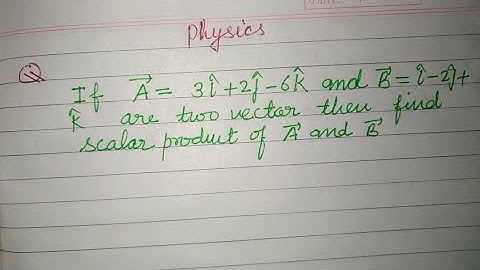 Physics
Q If A⃗ = 3î+2ĵ-6k̂ and B⃗ = î-2ĵ+
k̂ are two vector then find
scalar product of A⃗ and B⃗